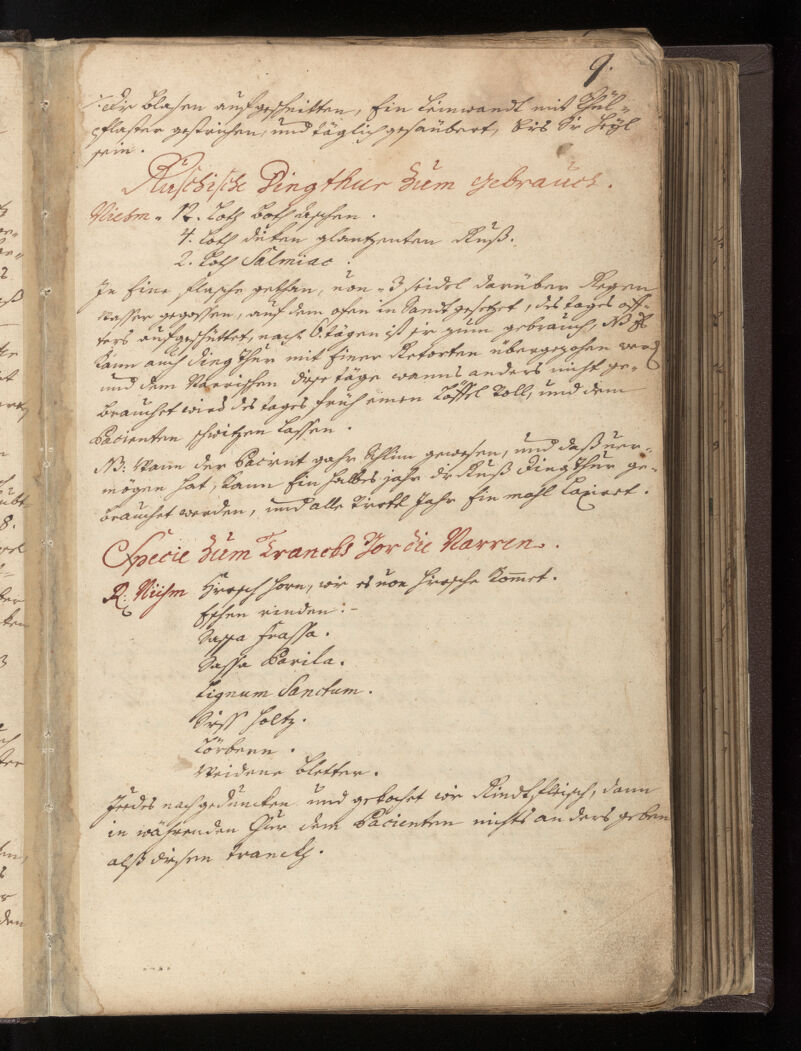 9.
die blasen aufgeschnitten, Ein leinwandt mit
pflaster gestrichen, und täglich gesäubert, bis sie heyl
sein.
Rusische Dingthur Zum gebrauch.
Niehm 12. loth aschen.
4. loth dicken glantzenten Ruß.
2. loth Salmiac.
In Eine flasche gethan, von 3 seidel darüber Regen
wasser gegossen, auf dem ofen in Sandt gesetzet, des tages öff-
ters aufgeschüttet, nach 6. tägen ist er zum gebrauch, NB
kann auch Dingthur mit Einer Retorten übergezohen werd
und dem Narrischen diese täge wanns anders nicht ge-
brauchet wird des tages früh einen Löffel voll, und dem
Pacienten schwitzen lassen.
NB: Wann der Pacient gahr schlim gewesen, und daß ver-
mögen hat, kann Ein halbes jahr die Ruß Dingthur ge-
brauchet werden, und alle Jahr Ein mahl Laxiert.
Specie Zum Tranckh Vor die Narren.
R: Niehm Hirsch horn, wie es von hirsche kommet.
Eschen rinden:-
Sassa Frassa.
Sassa Parila.
Lignum Sanctum.
Süss holtz.
Lörbern.
Weidene bletter.
Jedes nach geduncken und gekochet wie Rindtfleisch, dann
in währenden Chur dem Pacienten nichts anders geben
alß diesen tranckh.